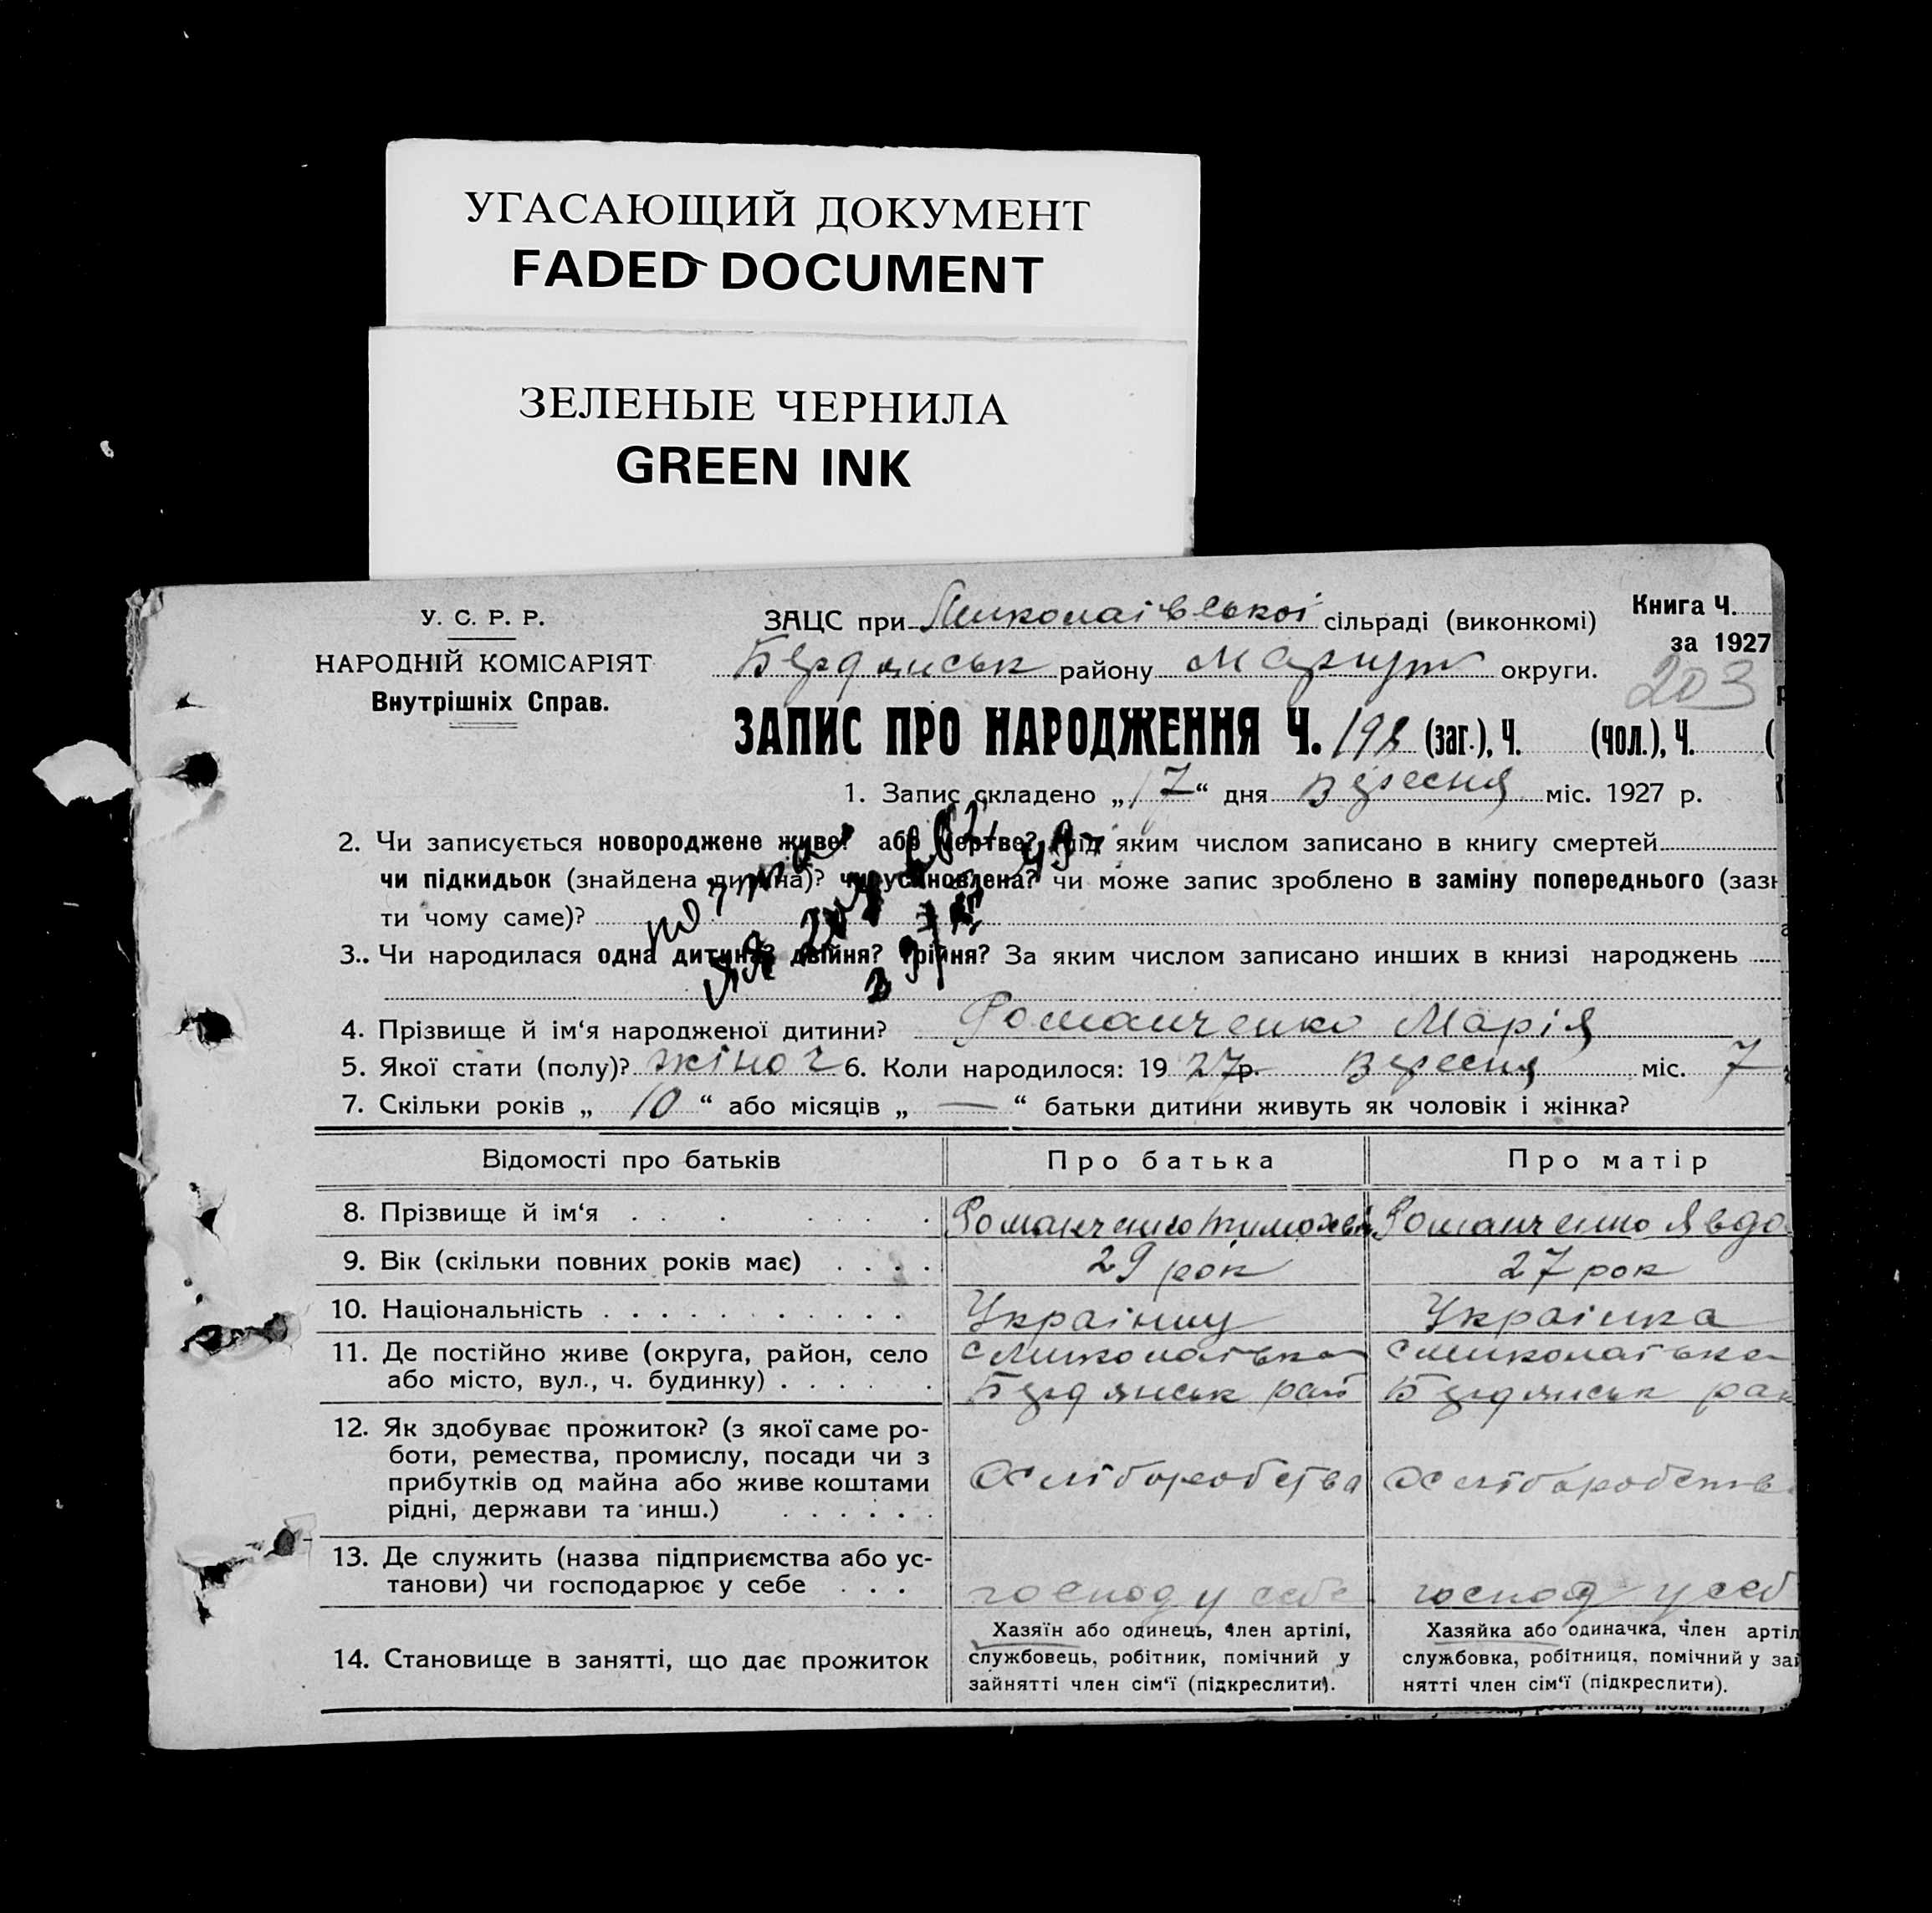 УГАСАЮЩИЙ ДОКУМЕНТ
FADED DOCUMENT
ЗЕЛЕНЫЕ ЧЕРНИЛА
GREEN INK
У. С. Р. Р.
НАРОДНІЙ КОМІСАРІЯТ
Внутрішніх Справ.
ЗАЦС при Миколаівської сільраді (виконкомі)
Бердянськ району Маріуп округи.
Книга Ч.
за 1927
203
ЗАПИС ПРО НАРОДЖЕННЯ Ч. 198 (заг.), Ч. (чол.), Ч. (
1. Запис складено „17“ дня вересня міс. 1927 р.
2. Чи записується новороджене живе? або мертве? під яким числом записано в книгу смертей
чи підкидьок (знайдена дитина)? чи установлена? чи може запис зроблено в заміну попереднього (зазн
ти чому саме)?
3. Чи народилася одна дитина? двійня? трійня? За яким числом записано инших в книзі народжень
4. Прізвище й ім‘я народженої дитини? Романченко Марія
5. Якої стати (полу)? жіноч 6. Коли народилося: 1927р. вересня міс. 7
7. Скільки років „ 10 “ або місяців „ — “ батьки дитини живуть як чоловік і жінка?
Відомості про батьків Про батька Про матір
8. Прізвище й ім‘я . . . . . . . Романченко Тимохвій Романченко Явдо
9. Вік (скільки повних років має) . . . . 29 рок 27 рок
10. Національність . . . . . . . . . . . Україниц Українка
11. Де постійно живе (округа, район, село с Миколаівка с Миколаівка
або місто, вул., ч. будинку) . . . . . . Бердянськ рай Бердянськ рай
12. Як здобуває прожиток? (з якої саме ро-
боти, ремества, промислу, посади чи з
прибутків од майна або живе коштами Хліборобства Хліборобств
рідні, держави та инш.) . . . . . .
13. Де служить (назва підприємства або ус-
танови) чи господарює у себе . . . господ у себе господ у себ
14. Становище в занятті, що дає прожиток
Хазяїн або одинець, член артілі,
службовець, робітник, помічний у
зайнятті член сім‘ї (підкреслити).
Хазяйка або одиначка, член артіл
службовка, робітниця, помічний у зай
нятті член сім‘ї (підкреслити).